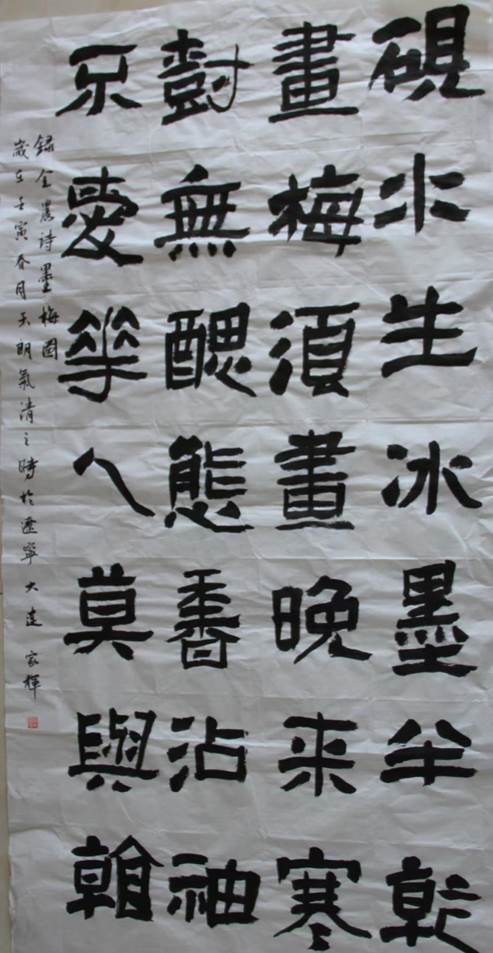 硯水生冰墨半乾
畫梅須畫晚來寒
尌無醜態香沾袖
不愛華人莫與看
錄金農詩墨梅圖
歲在壬寅春月天朗氣清之時於遼寧大連家輝